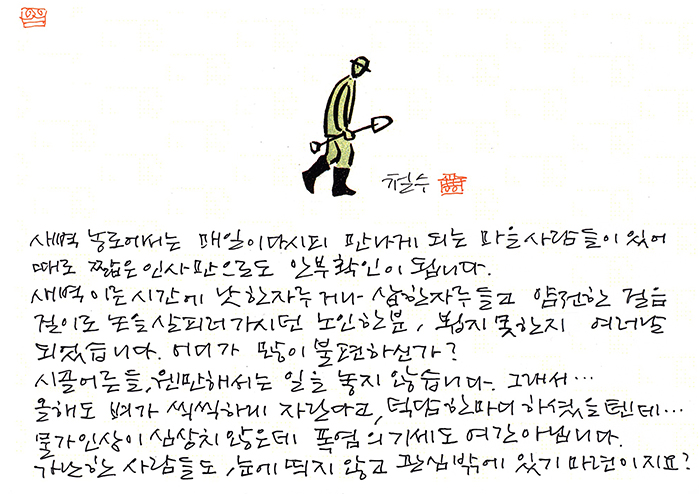 철수
새벽 농로에서는 매일이다시피 만나게 되는 마을사람들이 있어
때로 짧은 인사만으로도 안부확인이 됩니다.
새벽 이른시간에 낫 한자루 거나 삽한자루 들고 얌전한 걸음
걸이로 논을 살피러가시던 노인 한분, 뵙지 못한지 여러날
되었습니다. 어디가 많이 불편하신가?
시골어른들, 웬만해서는 일을 놓지 않습니다. 그래서…
올해도 벼가 씩씩하니 자란다고, 덕담 한마디 하셨을텐데…
물가인상이 심상치 않은데 폭염의 기세도 여간아닙니다.
가난한 사람들도, 눈에 띄지 않고 관심밖에 있기 마련이지요?